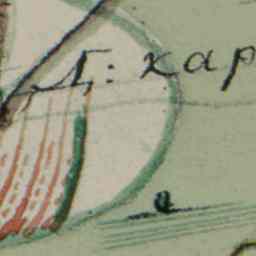 Д: кар